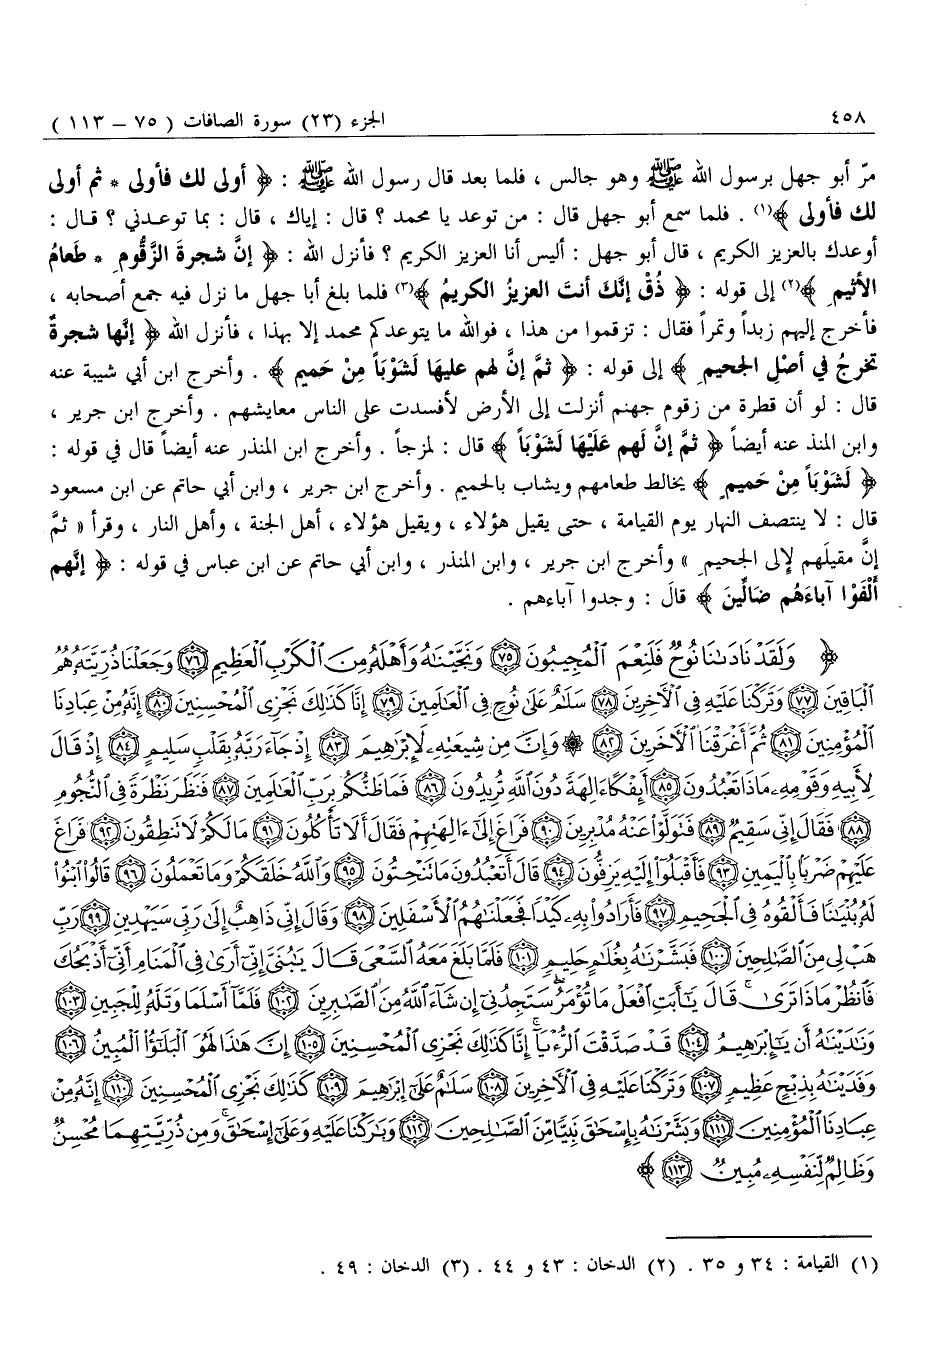 ٤٥٨ الجزء (٢٣) سورة الصافات ( ٧٥ – ١١٣ )
مرّ أبو جهل برسول الله ﷺ وهو جالس ، فلما بعد قال رسول الله ﷺ : ﴿ أولى لك فأولى * ثم أولى
لك فأولى ﴾(١) . فلما سمع أبو جهل قال : من توعد يا محمد ؟ قال : إياك ، قال : بما توعدني ؟ قال :
أوعدك بالعزيز الكريم ، قال أبو جهل : أليس أنا العزيز الكريم ؟ فأنزل الله : ﴿ إنَّ شجرةَ الزَّقُّومِ * طَعامُ
الأثيمِ ﴾(٢) إلى قوله : ﴿ ذُقْ إنَّكَ أنتَ العزيزُ الكريمُ ﴾(٣) فلما بلغ أبا جهل ما نزل فيه جمع أصحابه ،
فأخرج إليهم زبداً وتمراً فقال : تزقموا من هذا ، فوالله ما يتوعدكم محمد إلا بهذا ، فأنزل الله ﴿ إنَّها شجرةٌ
تخرجُ في أصْلِ الجحيمِ ﴾ إلى قوله : ﴿ ثمَّ إنَّ لهم عليهَا لَشَوْبَاً مِنْ حَميم ﴾ . وأخرج ابن أبي شيبة عنه
قال : لو أن قطرة من زقوم جهنم أنزلت إلى الأرض لأفسدت على الناس معايشهم . وأخرج ابن جرير ،
وابن المنذ عنه أيضاً ﴿ ثمَّ إنَّ لَهم عَلَيْهَا لَشَوْبَاً ﴾ قال : لمزجاً . وأخرج ابن المنذر عنه أيضاً قال في قوله :
﴿ لَشَوْبَاً مِنْ حَميمٍ ﴾ يخالط طعامهم ويشاب بالحميم . وأخرج ابن جرير ، وابن أبي حاتم عن ابن مسعود
قال : لا ينتصف النهار يوم القيامة ، حتى يقيل هؤلاء ، ويقيل هؤلاء ، أهل الجنة ، وأهل النار ، وقرأ « ثمَّ
إنَّ مقيلَهم لإلى الجحيمِ » وأخرج ابن جرير ، وابن المنذر ، وابن أبي حاتم عن ابن عباس في قوله : ﴿ إنَّهم
أَلْفَوْا آباءَهُم ضَالِّينَ ﴾ قالَ : وجدوا آباءهم .
﴿ وَلَقَدْ نَادَىٰنَا نُوحٌ فَلَنِعْمَ ٱلْمُجِيبُونَ ٧٥ وَنَجَّيْنَٰهُ وَأَهْلَهُۥ مِنَ ٱلْكَرْبِ ٱلْعَظِيمِ ٧٦ وَجَعَلْنَا ذُرِّيَّتَهُۥ هُمُ
ٱلْبَاقِينَ ٧٧ وَتَرَكْنَا عَلَيْهِ فِى ٱلْءَاخِرِينَ ٧٨ سَلَٰمٌ عَلَىٰ نُوحٍ فِى ٱلْعَٰلَمِينَ ٧٩ إِنَّا كَذَٰلِكَ نَجْزِى ٱلْمُحْسِنِينَ ٨٠ إِنَّهُۥ مِنْ عِبَادِنَا
ٱلْمُؤْمِنِينَ ٨١ ثُمَّ أَغْرَقْنَا ٱلْءَاخَرِينَ ٨٢ ۞ وَإِنَّ مِن شِيعَتِهِۦ لَإِبْرَٰهِيمَ ٨٣ إِذْ جَآءَ رَبَّهُۥ بِقَلْبٍ سَلِيمٍ ٨٤ إِذْ قَالَ
لِأَبِيهِ وَقَوْمِهِۦ مَاذَا تَعْبُدُونَ ٨٥ أَئِفْكًا ءَالِهَةً دُونَ ٱللَّهِ تُرِيدُونَ ٨٦ فَمَا ظَنُّكُم بِرَبِّ ٱلْعَٰلَمِينَ ٨٧ فَنَظَرَ نَظْرَةً فِى ٱلنُّجُومِ
٨٨ فَقَالَ إِنِّى سَقِيمٌ ٨٩ فَتَوَلَّوْا۟ عَنْهُ مُدْبِرِينَ ٩٠ فَرَاغَ إِلَىٰٓ ءَالِهَتِهِمْ فَقَالَ أَلَا تَأْكُلُونَ ٩١ مَا لَكُمْ لَا تَنطِقُونَ ٩٢ فَرَاغَ
عَلَيْهِمْ ضَرْبًۢا بِٱلْيَمِينِ ٩٣ فَأَقْبَلُوٓا۟ إِلَيْهِ يَزِفُّونَ ٩٤ قَالَ أَتَعْبُدُونَ مَا تَنْحِتُونَ ٩٥ وَٱللَّهُ خَلَقَكُمْ وَمَا تَعْمَلُونَ ٩٦ قَالُوا۟ ٱبْنُوا۟
لَهُۥ بُنْيَٰنًا فَأَلْقُوهُ فِى ٱلْجَحِيمِ ٩٧ فَأَرَادُوا۟ بِهِۦ كَيْدًا فَجَعَلْنَٰهُمُ ٱلْأَسْفَلِينَ ٩٨ وَقَالَ إِنِّى ذَاهِبٌ إِلَىٰ رَبِّى سَيَهْدِينِ ٩٩ رَبِّ
هَبْ لِى مِنَ ٱلصَّٰلِحِينَ ١٠٠ فَبَشَّرْنَٰهُ بِغُلَٰمٍ حَلِيمٍ ١٠١ فَلَمَّا بَلَغَ مَعَهُ ٱلسَّعْىَ قَالَ يَٰبُنَىَّ إِنِّىٓ أَرَىٰ فِى ٱلْمَنَامِ أَنِّىٓ أَذْبَحُكَ
فَٱنظُرْ مَاذَا تَرَىٰ ۚ قَالَ يَٰٓأَبَتِ ٱفْعَلْ مَا تُؤْمَرُ ۖ سَتَجِدُنِىٓ إِن شَآءَ ٱللَّهُ مِنَ ٱلصَّٰبِرِينَ ١٠٢ فَلَمَّآ أَسْلَمَا وَتَلَّهُۥ لِلْجَبِينِ ١٠٣
وَنَٰدَيْنَٰهُ أَن يَٰٓإِبْرَٰهِيمُ ١٠٤ قَدْ صَدَّقْتَ ٱلرُّءْيَآ ۚ إِنَّا كَذَٰلِكَ نَجْزِى ٱلْمُحْسِنِينَ ١٠٥ إِنَّ هَٰذَا لَهُوَ ٱلْبَلَٰٓؤُا۟ ٱلْمُبِينُ ١٠٦
وَفَدَيْنَٰهُ بِذِبْحٍ عَظِيمٍ ١٠٧ وَتَرَكْنَا عَلَيْهِ فِى ٱلْءَاخِرِينَ ١٠٨ سَلَٰمٌ عَلَىٰٓ إِبْرَٰهِيمَ ١٠٩ كَذَٰلِكَ نَجْزِى ٱلْمُحْسِنِينَ ١١٠ إِنَّهُۥ مِنْ
عِبَادِنَا ٱلْمُؤْمِنِينَ ١١١ وَبَشَّرْنَٰهُ بِإِسْحَٰقَ نَبِيًّا مِّنَ ٱلصَّٰلِحِينَ ١١٢ وَبَٰرَكْنَا عَلَيْهِ وَعَلَىٰٓ إِسْحَٰقَ ۚ وَمِن ذُرِّيَّتِهِمَا مُحْسِنٌ
وَظَالِمٌ لِّنَفْسِهِۦ مُبِينٌ ١١٣ ﴾
(١) القيامة : ٣٤ و ٣٥ . (٢) الدخان : ٤٣ و ٤٤ . (٣) الدخان : ٤٩ .